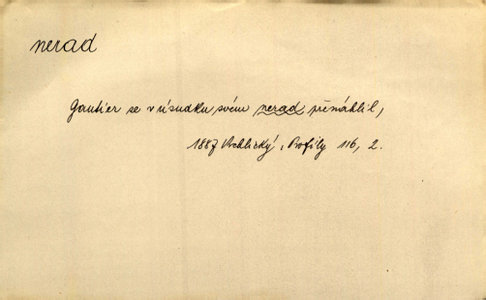 nerad
Gautier se v úsudku svém nerad přenáhlil,
1887 Vrchlický, Profily 116, 2.